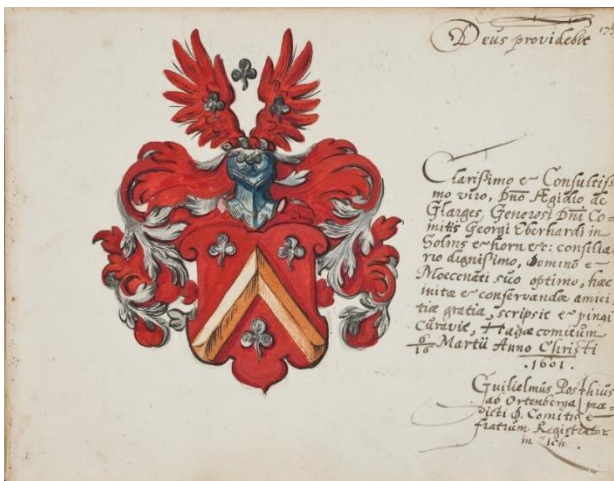 Deus providebit
Clarissimo & Consultissi
mo viro, Dno Ægidio de
Glarges, Generosi Dni Co
mitis Georgi Eberhardi in
Solms & horn &c: consilia
rio dignissimo, Domino &
Moecenati suo optimo, haec
initae & conservandae amici
tiae gratia, scripsit & pingi
curavit, Hagae comitum
6/16 Martii Anno Christi
.1601.
Guilielmus Posthius
ab Ortenberga prae-
dicti D. Comitis &
fratrum Registrator
in Lich.